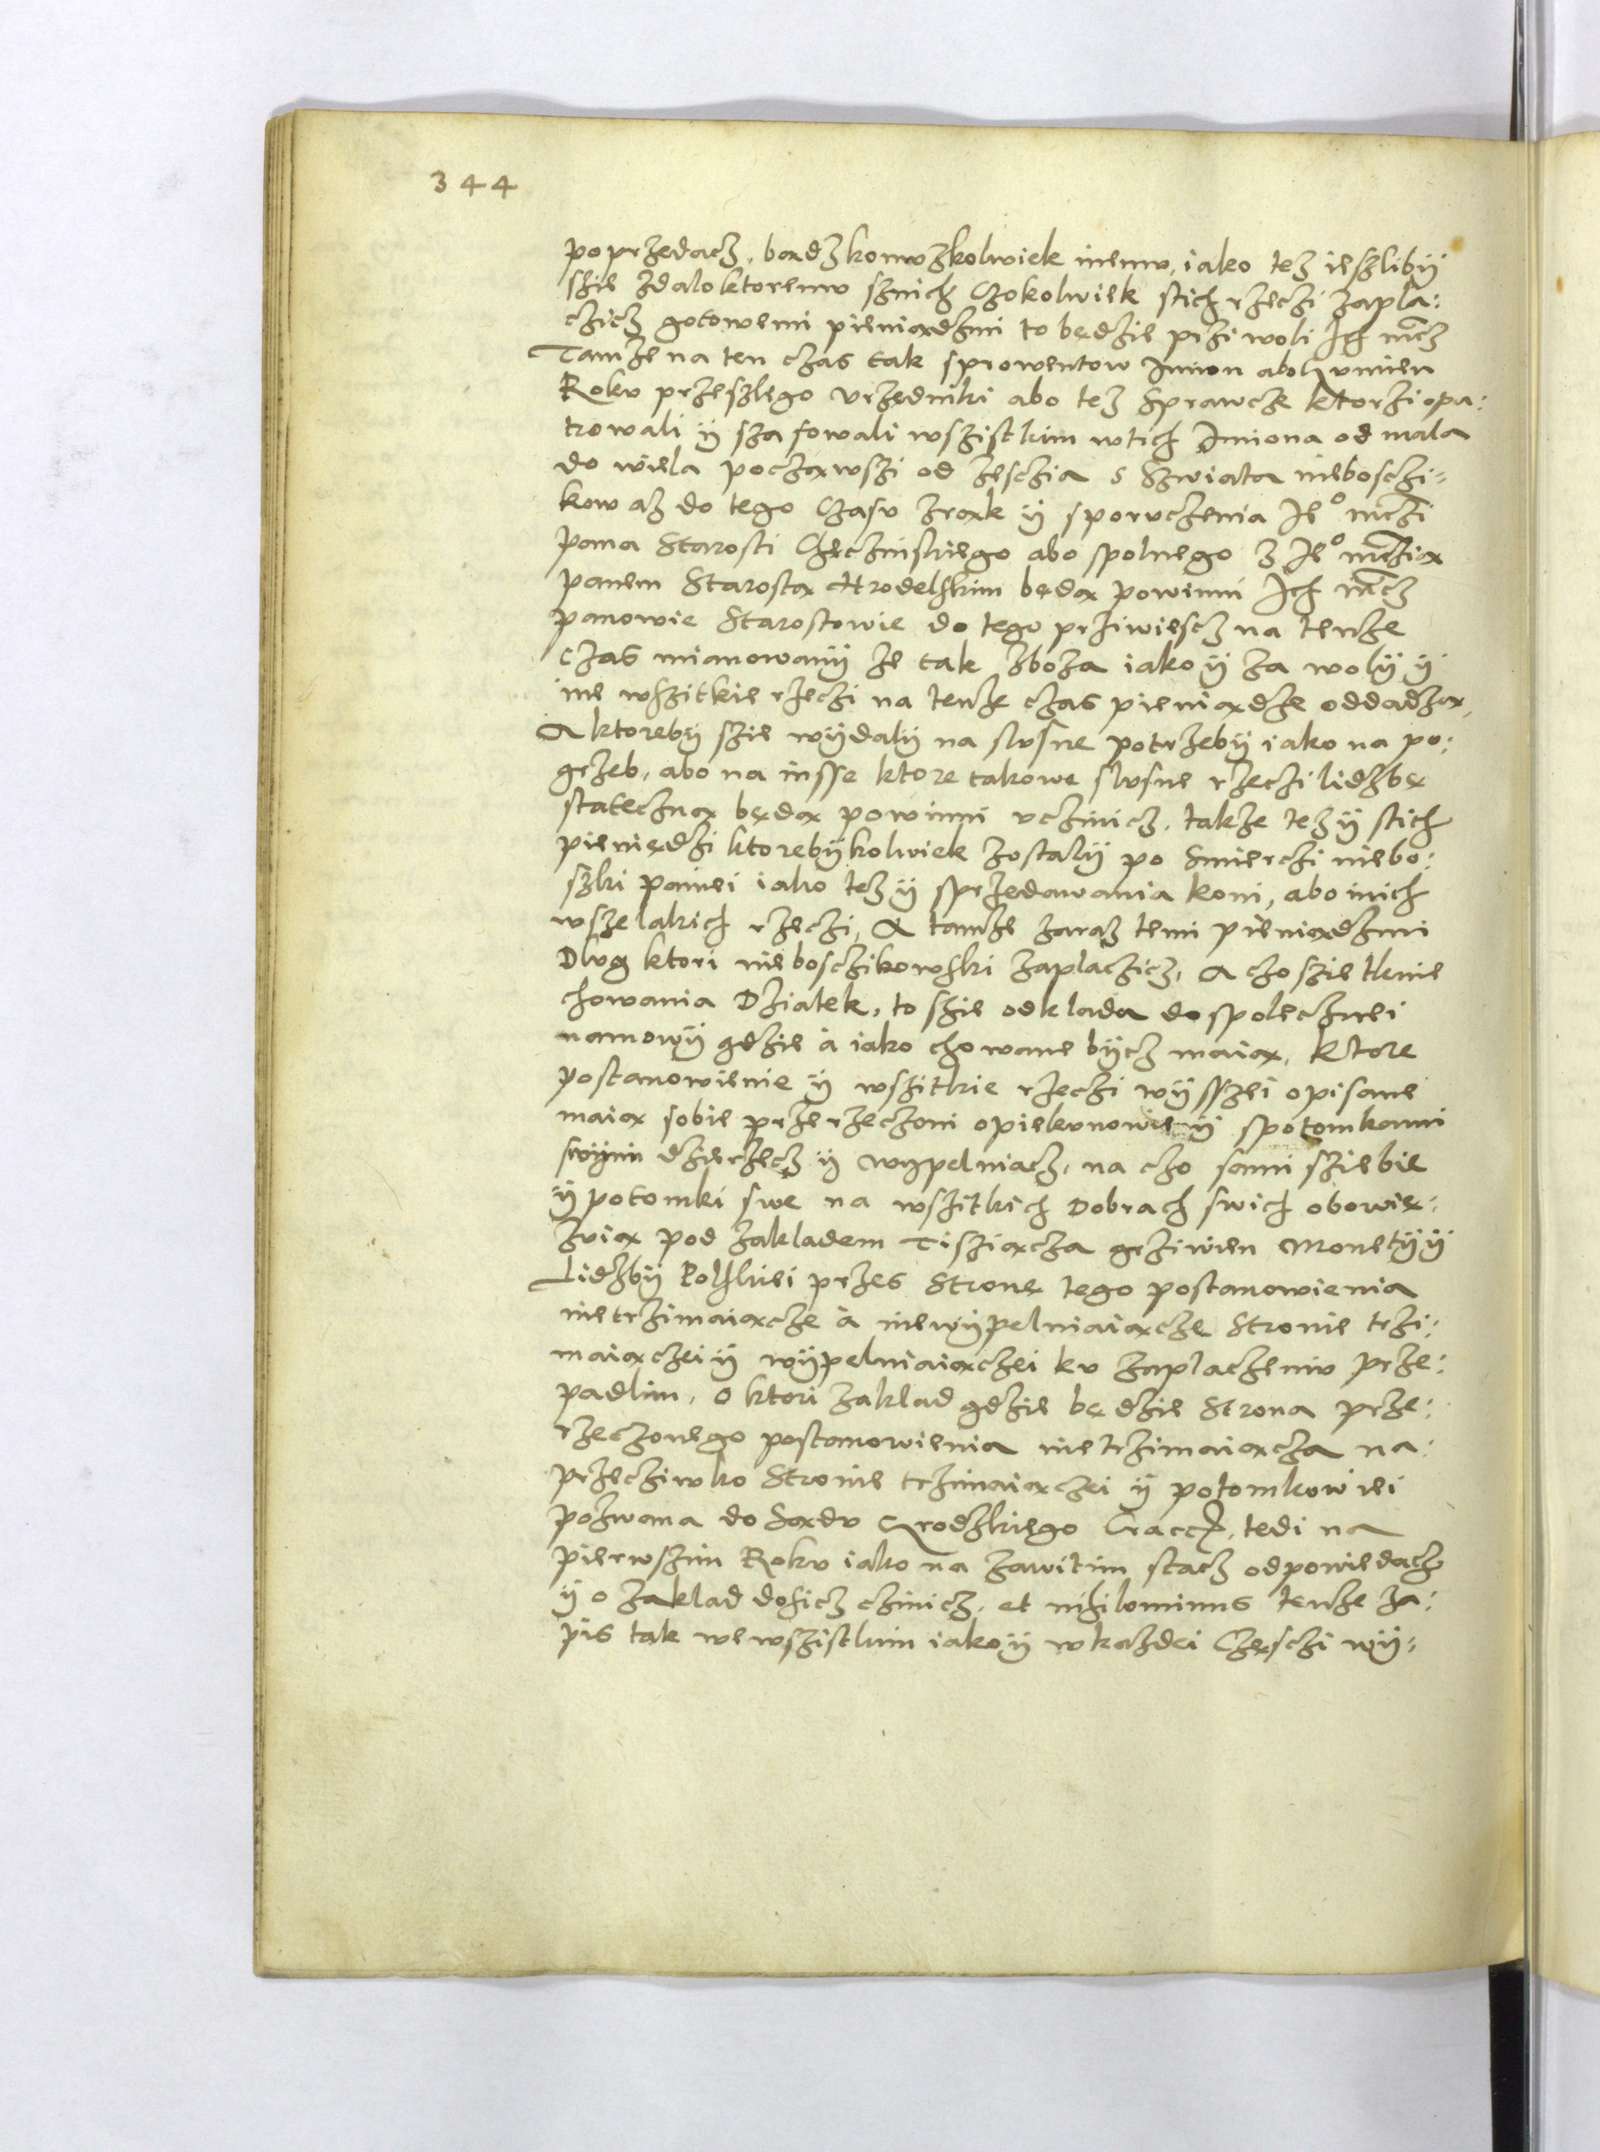 344
poprzedacz, bądz komuzkolwiek inemu, iako tez ieszliby
szie zdalo ktoremu sznich Czokolwiek stich rzeczi zapla:
czicz gotowemi pieniądzmi to będzie przi woli Ich mczi
Tamze na ten czas tak sprowentow Imion abo Gumien
Roku przeszlego Urzędniki abo tez Sprawcze ktorzi opa:
trowali ÿ szafowali wszistkim wtich Imiona od mala
do wiela począwszi od zesczia s Szwiata nieboszczi=
kow az do tego Czasu zrąk ÿ sporuczenia Je° mczi
pana Starosti Chęczinskiego abo spolnego z Je° mczią
panem Starostą Hrodelskim będą powinni Ich mcz
panowie Starostowie do tego prziwiescz na tenze
czas mianowanÿ ze tak zboza iako ÿ za wolÿ ÿ
ine wszitkie rzeczi na tenze czas pieniądze oddadzą,
A ktorebÿ szie wÿdalÿ na slusne potrzebÿ iako na po:
grzeb, abo na insse ktore takowe slusne rzeczi lidzbę
stateczną będą powinni uczinicz, takze tez ÿ stich
pieniędzi ktorebÿkolwiek zostalÿ po Smierczi niebo:
szki paniei iako tez ÿ sprzedawania koni, abo inich
wszelakich rzeczi, A tamze zaraz temi pieniądzmi
Dlug ktori nieboszczikowski zaplaczicz, A czo szie tknie
chowania Dziatek, to szie odklada do spoleczniei
namowÿ gdzie a iako chowane bÿcz maią, Ktore
postanowienie ÿ wszitkie rzeczi wÿsszei opisane
maią sobie przerzeczoni opiekunowie ÿ spotomkami
swÿmi dzierzecz ÿ wypelniacz, na czo sami sziebie
ÿ potomki swe na wszitkich Dobrach swich obowię:
zuią pod zakladem Tisziącza grziwien Monetÿ ÿ
Lidzbÿ Polskiei przes Stronę tego postanowienia
nietrzimaiącze a niewÿpelniaiącze Stronie trzi:
maiączei ÿ wÿpelniaiączei ku zaplaczeniu prze:
padlim, o ktori zaklad gdzie będzie Strona prze:
rzeczonego postanowienia nietrzimaiącza na:
przecziwko Stronie trzimaiączei ÿ potomkow iei
pozwana do Sądu Grodzkiego Cracc, tedi na
pierwszim Roku iako na zawitim stacz odpowiedacz
ÿ o zaklad dosicz czinicz, et nihilominus tenze za:
pis tak wewszistkim iako ÿ w kazdei Częsczi wÿ=